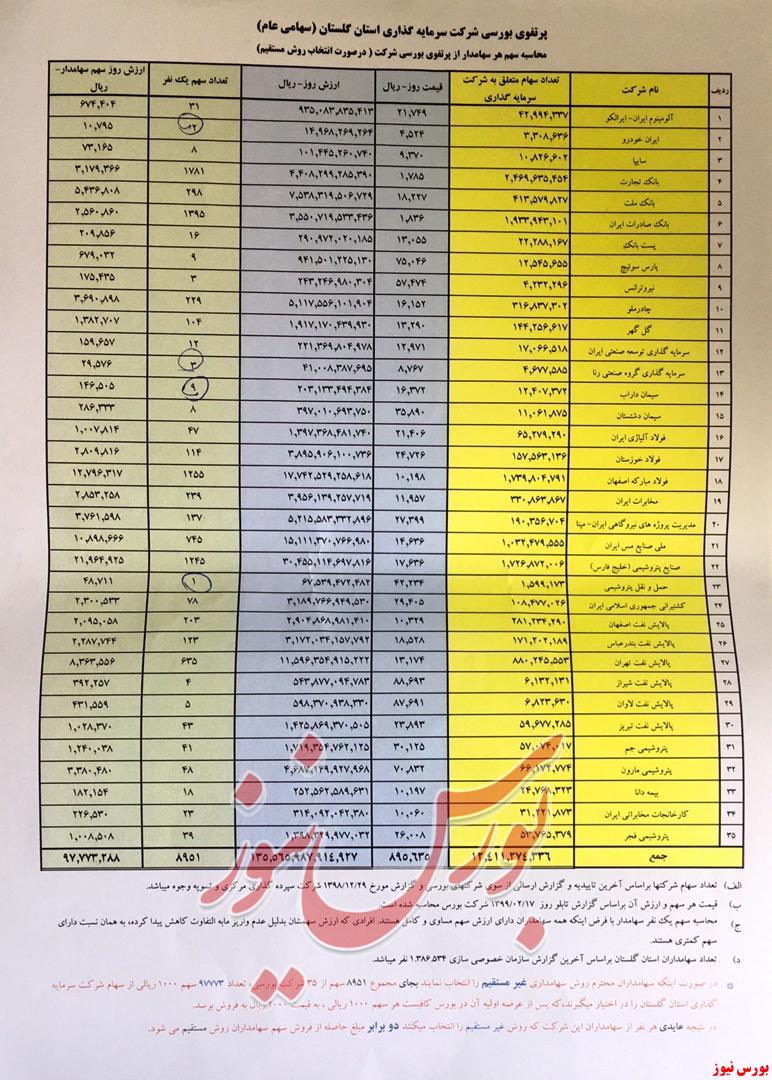 پرتفوی بورسی شرکت سرمایه گذاری استان گلستان (سهامی عام)
محاسبه سهم هر سهامدار از پرتفوی بورسی شرکت ( درصورت انتخاب روش مستقیم)
ردیف نام شرکت تعداد سهام متعلق به شرکت سرمایه گذاری قیمت روز-ریال ارزش روز-ریال تعداد سهم یک نفر ارزش روز سهم سهامدار-ریال
۱ آلومینوم ایران-ایرالکو ۴۲,۹۹۴,۳۳۷ ۲۱,۷۴۹ ۹۳۵,۰۸۳,۸۳۵,۴۱۳ ۳۱ ۶۷۴,۴۰۴
۲ ایران خودرو ۳,۳۰۸,۶۳۶ ۴,۵۲۴ ۱۴,۹۶۸,۲۶۹,۲۶۴ ۲ ۱۰,۷۹۵
۳ سایپا ۱۰,۸۲۶,۶۰۲ ۹,۳۷۰ ۱۰۱,۴۴۵,۲۶۰,۷۴۰ ۸ ۷۳,۱۶۵
۴ بانک تجارت ۲,۴۶۹,۶۳۵,۴۵۴ ۱,۷۸۵ ۴,۴۰۸,۲۹۹,۲۸۵,۳۹۰ ۱۷۸۱ ۳,۱۷۹,۳۶۶
۵ بانک ملت ۴۱۳,۵۷۹,۸۲۷ ۱۸,۲۲۷ ۷,۵۳۸,۳۱۹,۵۰۶,۷۲۹ ۲۹۸ ۵,۴۳۶,۸۰۸
۶ بانک صادرات ایران ۱,۹۳۳,۹۴۳,۱۰۱ ۱,۸۳۶ ۳,۵۵۰,۷۱۹,۵۳۳,۴۳۶ ۱۳۹۵ ۲,۵۶۰,۸۶۰
۷ پست بانک ۲۲,۲۸۸,۱۶۷ ۱۳,۰۵۵ ۲۹۰,۹۷۲,۰۲۰,۱۸۵ ۱۶ ۲۰۹,۸۵۶
۸ پارس سوئیچ ۱۲,۵۴۵,۶۵۵ ۷۵,۰۴۶ ۹۴۱,۵۰۱,۲۲۵,۱۳۰ ۹ ۶۷۹,۰۳۲
۹ نیروترانس ۴,۲۳۲,۲۹۶ ۵۷,۴۷۴ ۲۴۳,۲۴۶,۹۸۰,۳۰۴ ۳ ۱۷۵,۴۳۵
۱۰ چادرملو ۳۱۶,۸۳۷,۳۰۲ ۱۶,۱۵۲ ۵,۱۱۷,۵۵۶,۱۰۱,۹۰۴ ۲۲۹ ۳,۶۹۰,۸۹۸
۱۱ گل گهر ۱۴۴,۲۵۶,۶۱۷ ۱۳,۲۹۰ ۱,۹۱۷,۱۷۰,۴۳۹,۹۳۰ ۱۰۴ ۱,۳۸۲,۷۰۷
۱۲ سرمایه گذاری توسعه صنعتی ایران ۱۷,۰۶۶,۵۱۸ ۱۲,۹۷۱ ۲۲۱,۳۶۹,۸۰۴,۹۷۸ ۱۲ ۱۵۹,۶۵۷
۱۳ سرمایه گذاری گروه صنعتی رنا ۴,۶۷۷,۵۸۵ ۸,۷۶۷ ۴۱,۰۰۸,۳۸۷,۶۹۵ ۳ ۲۹,۵۷۶
۱۴ سیمان داراب ۱۲,۴۰۷,۳۷۲ ۱۶,۳۷۲ ۲۰۳,۱۳۳,۴۹۴,۳۸۴ ۹ ۱۴۶,۵۰۵
۱۵ سیمان دشتستان ۱۱,۰۶۱,۸۷۵ ۳۵,۸۹۰ ۳۹۷,۰۱۰,۶۹۳,۷۵۰ ۸ ۲۸۶,۳۳۳
۱۶ فولاد آلیاژی ایران ۶۵,۲۷۹,۲۹۰ ۲۱,۴۰۶ ۱,۳۹۷,۳۶۸,۴۸۱,۷۴۰ ۴۷ ۱,۰۰۷,۸۱۴
۱۷ فولاد خوزستان ۱۵۷,۵۶۳,۱۳۶ ۲۴,۷۲۶ ۳,۸۹۵,۹۰۶,۱۰۰,۷۳۶ ۱۱۴ ۲,۸۰۹,۸۱۶
۱۸ فولاد مبارکه اصفهان ۱,۷۳۹,۸۰۴,۷۹۱ ۱۰,۱۹۸ ۱۷,۷۴۲,۵۲۹,۲۵۸,۶۱۸ ۱۲۵۵ ۱۲,۷۹۶,۳۱۷
۱۹ مخابرات ایران ۳۳۰,۸۶۳,۸۶۷ ۱۱,۹۵۷ ۳,۹۵۶,۱۳۹,۲۵۷,۷۱۹ ۲۳۹ ۲,۸۵۳,۲۵۸
۲۰ مدیریت پروژه های نیروگاهی ایران-مپنا ۱۹۰,۳۵۶,۷۰۴ ۲۷,۳۹۹ ۵,۲۱۵,۵۸۳,۳۳۲,۸۹۶ ۱۳۷ ۳,۷۶۱,۵۹۸
۲۱ ملی صنایع مس ایران ۱,۰۳۲,۴۷۹,۵۵۵ ۱۴,۶۳۶ ۱۵,۱۱۱,۳۷۰,۷۶۶,۹۸۰ ۷۴۵ ۱۰,۸۹۸,۶۶۶
۲۲ صنایع پتروشیمی (خلیج فارس) ۱,۷۲۶,۸۷۲,۰۰۶ ۱۷,۶۳۶ ۳۰,۴۵۵,۱۱۴,۶۹۷,۸۱۶ ۱۲۴۵ ۲۱,۹۶۴,۹۲۵
۲۳ حمل و نقل پتروشیمی ۱,۵۹۹,۱۷۳ ۴۲,۲۳۴ ۶۷,۵۳۹,۴۷۲,۴۸۲ ۱ ۴۸,۷۱۱
۲۴ کشتیرانی جمهوری اسلامی ایران ۱۰۸,۴۷۷,۰۲۶ ۲۹,۴۰۵ ۳,۱۸۹,۷۶۶,۹۴۹,۵۳۰ ۷۸ ۲,۳۰۰,۵۳۳
۲۵ پالایش نفت اصفهان ۲۸۱,۲۳۴,۲۹۰ ۱۰,۳۲۹ ۲,۹۰۴,۸۶۸,۹۸۱,۴۱۰ ۲۰۳ ۲,۰۹۵,۰۵۸
۲۶ پالایش نفت بندرعباس ۱۷۱,۲۰۲,۱۸۹ ۱۸,۵۲۸ ۳,۱۷۲,۰۳۴,۱۵۷,۷۹۲ ۱۲۳ ۲,۲۸۷,۷۴۴
۲۷ پالایش نفت تهران ۸۸۰,۲۴۵,۵۵۳ ۱۳,۱۷۴ ۱۱,۵۹۶,۳۵۴,۹۱۵,۲۲۲ ۶۳۵ ۸,۳۶۳,۵۵۶
۲۸ پالایش نفت شیراز ۶,۱۳۲,۱۳۱ ۸۸,۶۹۳ ۵۴۳,۸۷۷,۰۹۴,۷۸۳ ۴ ۳۹۲,۲۵۷
۲۹ پالایش نفت لاوان ۶,۸۲۳,۶۳۰ ۸۷,۶۹۱ ۵۹۸,۳۷۰,۹۳۸,۳۳۰ ۵ ۴۳۱,۵۵۹
۳۰ پالایش نفت تبریز ۵۹,۶۷۷,۲۸۵ ۲۳,۸۹۳ ۱,۴۲۵,۸۶۹,۳۷۰,۵۰۵ ۴۳ ۱,۰۲۸,۳۷۰
۳۱ پتروشیمی جم ۵۷,۰۷۴,۰۱۷ ۳۰,۱۲۵ ۱,۷۱۹,۳۵۴,۷۶۲,۱۲۵ ۴۱ ۱,۲۴۰,۰۳۸
۳۲ پتروشیمی مارون ۶۶,۱۷۲,۷۷۴ ۷۰,۸۳۲ ۴,۶۸۷,۱۴۹,۹۲۷,۹۶۸ ۴۸ ۳,۳۸۰,۴۸۰
۳۳ بیمه دانا ۲۴,۷۶۸,۳۲۳ ۱۰,۱۹۷ ۲۵۲,۵۶۲,۵۸۹,۶۳۱ ۱۸ ۱۸۲,۱۵۴
۳۴ کارخانجات مخابراتی ایران ۳۱,۲۲۱,۸۷۳ ۱۰,۰۶۰ ۳۱۴,۰۹۲,۰۴۲,۳۸۰ ۲۳ ۲۲۶,۵۳۰
۳۵ پتروشیمی فجر ۵۳,۷۶۵,۳۷۹ ۲۶,۰۰۸ ۱,۳۹۸,۳۲۹,۹۷۷,۰۳۲ ۳۹ ۱,۰۰۸,۵۰۸
جمع ۱۲,۴۱۱,۲۷۴,۳۳۶ ۸۹۵,۶۳۵ ۱۳۵,۵۶۵,۹۸۷,۹۱۴,۹۲۷ ۸۹۵۱ ۹۷,۷۷۳,۲۸۸
الف) تعداد سهام شرکتها براساس آخرین تاییدیه و گزارش ارسالی از سوی شرکتهای بورسی و گزارش مورخ ۱۳۹۸/۱۲/۲۹ شرکت سپرده گذاری مرکزی و تسویه وجوه میباشد.
ب) قیمت هر سهم و ارزش آن براساس گزارش تابلو روز ۱۳۹۹/۰۲/۱۷ شرکت بورس محاسبه شده است.
ج) محاسبه سهم یک نفر سهامدار با فرض اینکه همه سهامداران دارای ارزش سهم مساوی و کامل هستند. افرادی که ارزش سهمشان بدلیل عدم واریز مابه التفاوت کاهش پیدا کرده، به همان نسبت دارای
سهم کمتری هستند.
د) تعداد سهامداران استان گلستان براساس آخرین گزارش سازمان خصوصی سازی ۱.۳۸۶.۵۳۴ نفر میباشد.
در صورت اینکه سهامداران محترم روش سهامداری غیر مستقیم را انتخاب نمایند بجای مجموع ۸۹۵۱ سهم از ۳۵ شرکت بورسی ، تعداد ۹۷۷۷۳ سهم ۱۰۰۰ ریالی از سهام شرکت سرمایه
گذاری استان گلستان را در اختیار میگیرند،که پس از عرضه اولیه آن در بورس کافیست هر سهم ۱۰۰۰ ریالی ، به قیمت ۲۰۰۰ ریال به فروش برسد.
در نتیجه عایدی هر نفر از سهامداران این شرکت که روش غیر مستقیم را انتخاب میکنند دو برابر مبلغ حاصله از فروش سهم سهامداران روش مستقیم می شود.
بورس نیوز
بورس نیوز